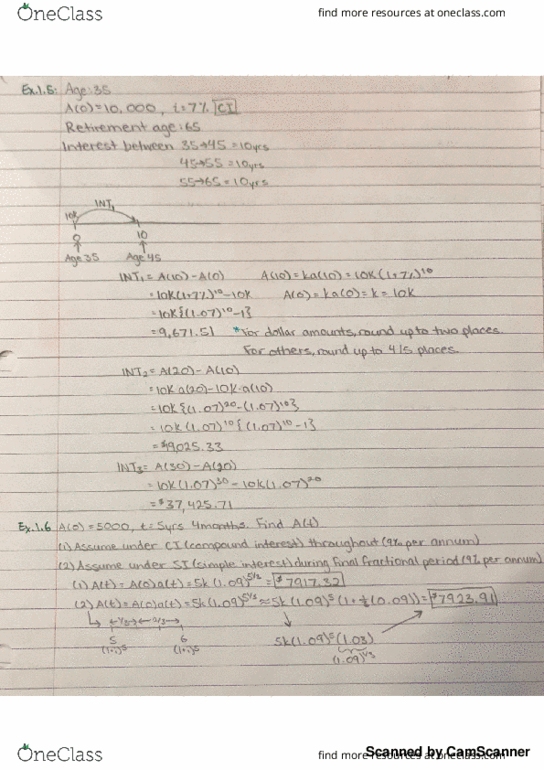 OneClass
find more resources at oneclass.com
Ex.1.5: Age: 35
A(0)=10,000, i=7% CI
Retirement age: 65
Interest between 35→45 = 10yrs
45→55 = 10yrs
55→65 = 10yrs
INT₁
10K
10
Age 35 Age 45
INT₁ = A(10)-A(0) A(10)=ka(10)=10K(1+7%)¹⁰
=10K(1+7%)¹⁰-10K A(0)=ka(0)=k=10K
=10K{(1.07)¹⁰-1}
=9,671.51 *For dollar amounts, round up to two places.
For others, round up to 4/5 places.
INT₂ = A(20)-A(10)
=10K a(20)-10K·a(10)
=10K{(1.07)²⁰-(1.07)¹⁰}
=10K(1.07)¹⁰{(1.07)¹⁰-1}
=$19025.33
INT₃ = A(30)-A(20)
=10K(1.07)³⁰-10K(1.07)²⁰
=$37,425.71
Ex.1.6 A(0)=5000, t=5yrs 4months. Find A(t)
(1) Assume under CI (compound interest) throughout (9% per annum)
(2) Assume under SI (simple interest) during final fractional period (9% per annum)
(1) A(t)=A(0)a(t)=5k(1.09)^5⅓=$7917.32
(2) A(t)=A(0)a(t)=5k(1.09)^5⅓≈5k(1.09)⁵(1+⅓(0.09))=$7923.91
←⅓→←2/3→
5 6 5k(1.09)⁵(1.03)
(1.09)^⅓
OneClass
find more resources at oneclass.com
Scanned by CamScanner